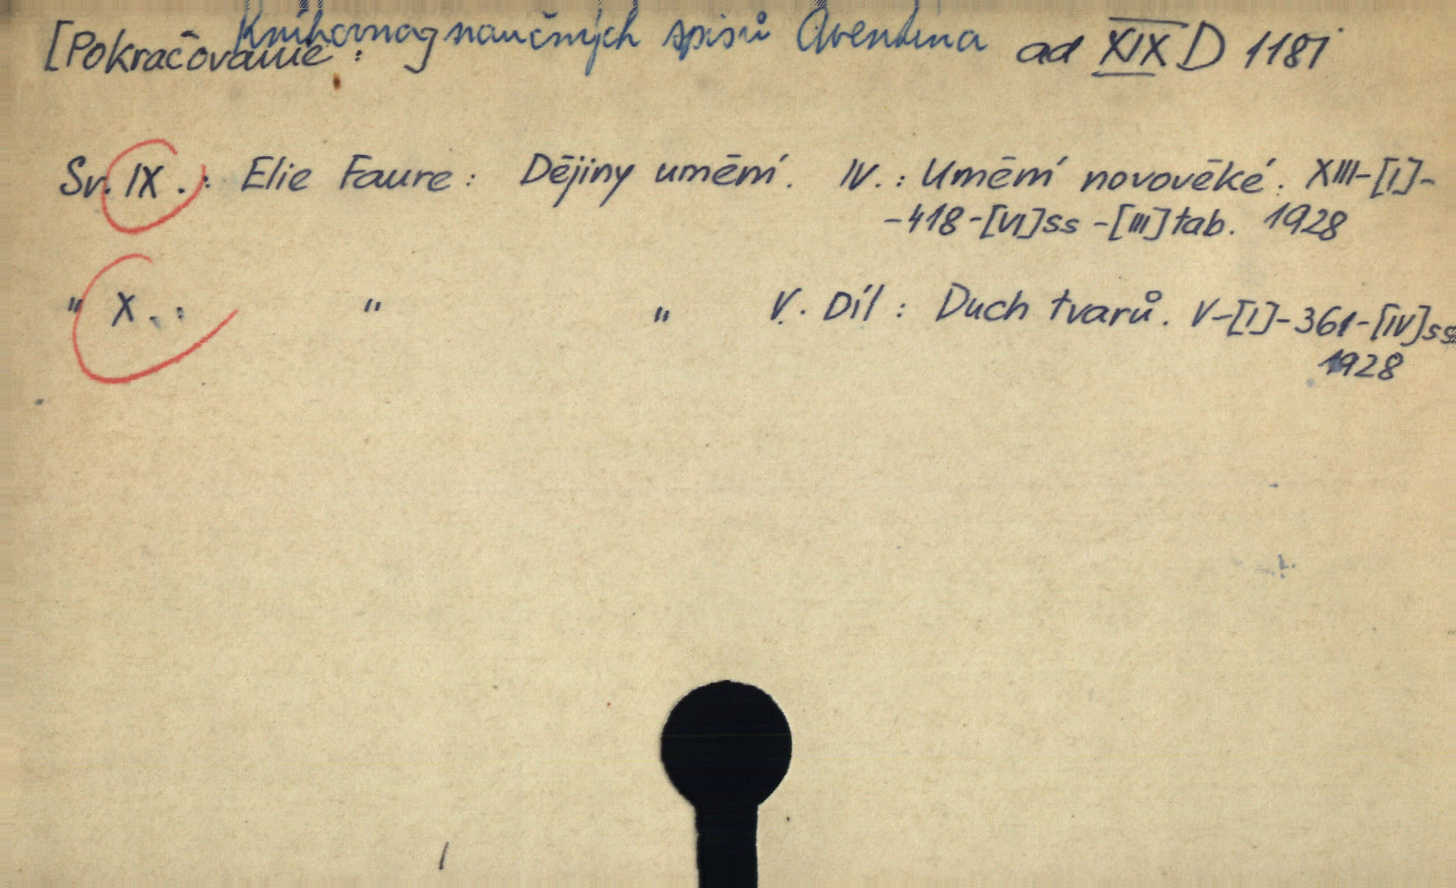 Knihovna naučných spisů Aventina
[Pokračovanie:] ad XIX D 1181
Sv. IX.: Elie Faure: Dějiny umění. IV.: Umění novověké. XIII-[I]-
-418-[VI]ss -[III]tab. 1928
" X.: " " V. Díl: Duch tvarů. V-[I]-361-[IV]ss
1928